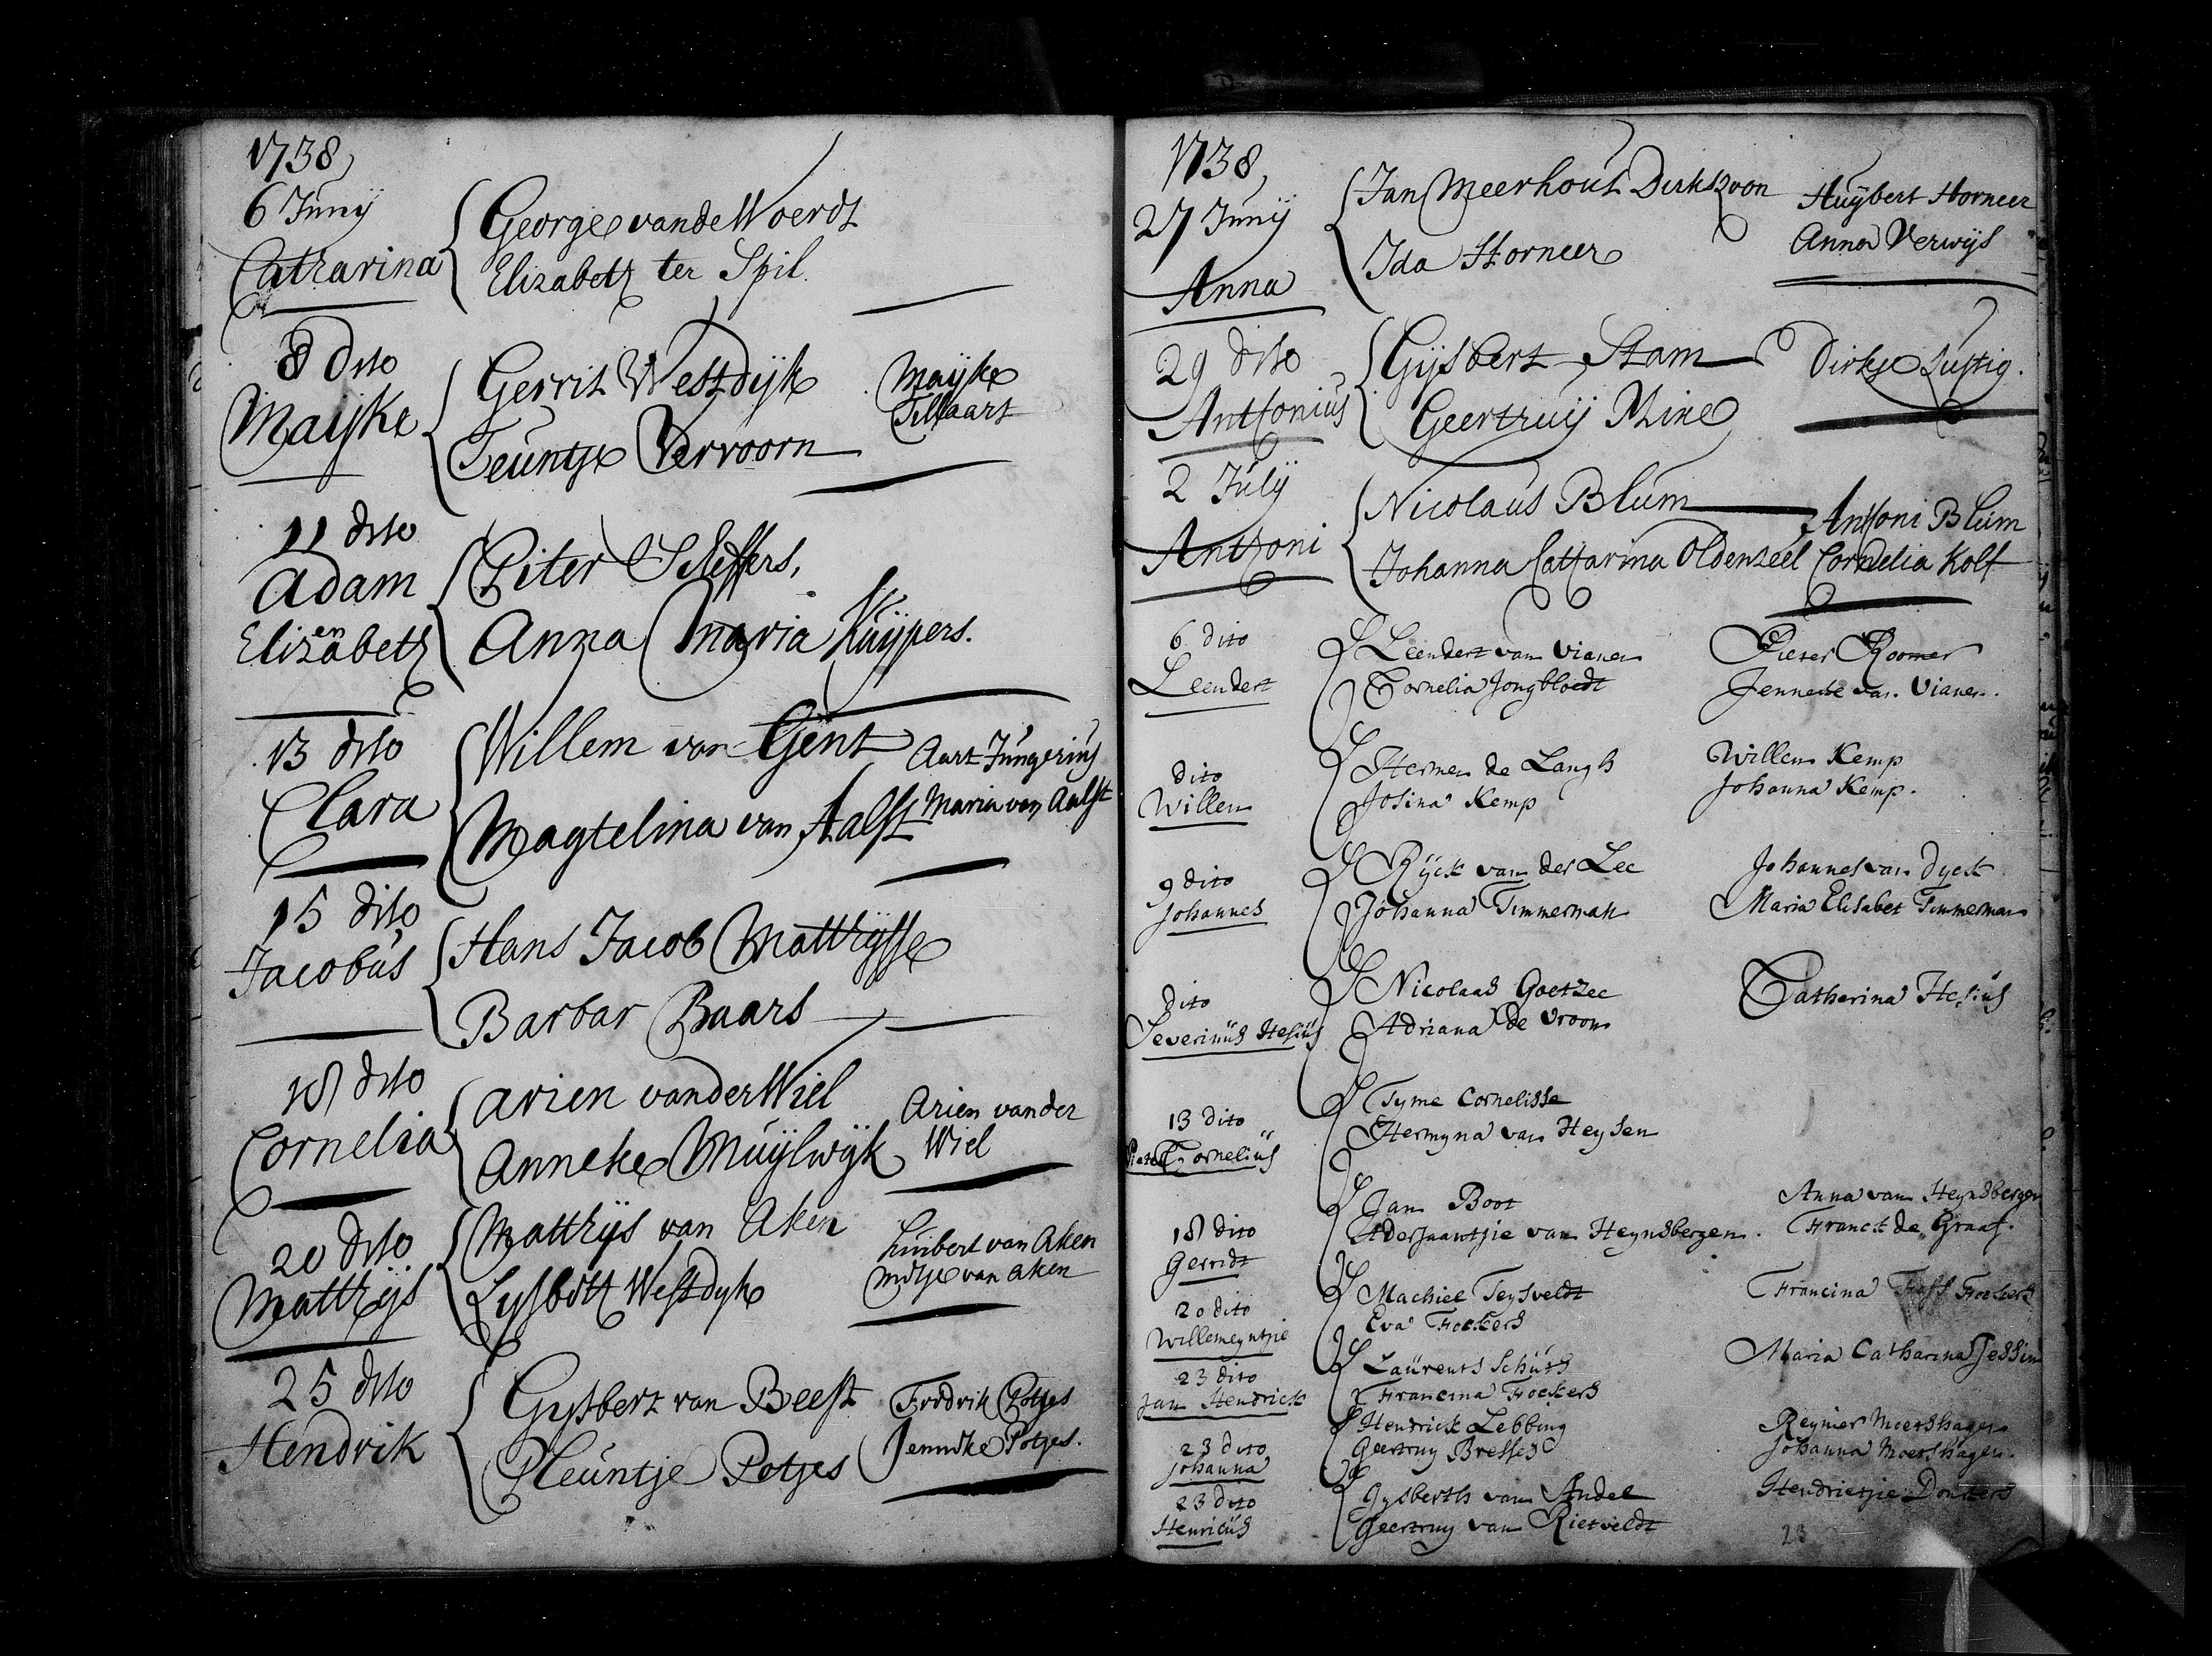 1738
6 Junij
Catharina
George vande Woerdt
Elizabeth ter Spil
8 dito
Maijke
Gerrit Westdijk
Teuntje Vervoorn
Maijke
Tillaart
11 dito
Adam
en
Elizabeth
Piter
Anna Maria Kuijpers.
13 dito
Clara
Willem van Gent
Magtelina van Aalst
Aart Jungerius
Maria van Aalst
15 dito
Jacobus
Hans Jacob Matthijsse
Barbar Baars
18 dito
Cornelia
Arien vander Wiel
Anneke Muijlwijk
Arien vander
Wiel
20 dito
Matthijs
Matthijs van Aken
Lysbett Westdyk
Huibert van Aken
van Aken
25 dito
Hendrik
Gysbert van Beest
Pleuntje Potjes
Fredrik Potjes
Jenneke Potjes.
1738
27 Junij
Anna
Jan Meerhout Dirkszoon
Ida Horneer
Huijbert Horneer
Anna Verwijs
29 dito
Anthonius
Gijsbert Stam
Geertruij Mine
Dirkje Lustig.
2 Julij
Anthoni
Nicolaus Blum
Johanna Catharina Oldenzeel
Anthoni Blum
Cornelia Kolf
6 dito
Leendert
Leendert van Vianen
Cornelia Jongbloedt
Pieter Roomer
Jenneke van Vianen.
dito
Willem
Hermen de Langh
Josina Kemp
Willem Kemp
Johanna Kemp.
9 dito
Johannes
Rijck van der Lee
Johanna Timmerman
Johannes van Dyck
Maria Elisabet Timmerman
dito
Severinus Hesius
Nicolaas Goetzee
Adriana de Vroom
Catharina Hesius
13 dito
Pieter Cornelius
Tyme Cornelisse
Hermyna van Heysen
18 dito
Gerridt
Jan Boot
Aderjaantjie van Heyndsbergen.
Anna van Heyndsbergen
Franck de Graaf.
20 dito
Willemeyntjie
Machiel Teysveldt
Eva Fockers
Francina Fockers
23 dito
Jan Hendrick
Laurents Schuts
Francina Fockers
Maria Catharina Jessin
23 dito
Johanna
Hendrick Lebbing
Geertruy Bresser
Reynier Moershagen
Johanna Moershagen.
23 dito
Henricus
Gysberth van Andel
Geertruy van Rietveldt
Hendrietjie Donkers
23